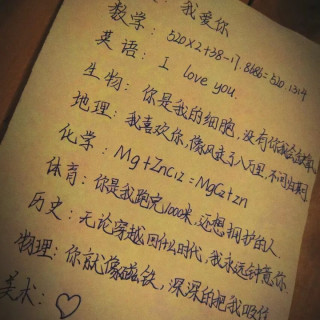 ：我爱你
数学：520×2+38-17.8686=520.1314
英语：I love you.
生物：你是我的细胞，没有你我会
地理：我喜欢你，像风走了八万里，不问归期
化学：Mg+Zncl2=MgCl2+zn
体育：你是我跑完1000米，还想拥护的人.
历史：无论穿越回什么时代，我永远钟意你.
物理：你就像磁铁，深深的把我吸住
美术：♡